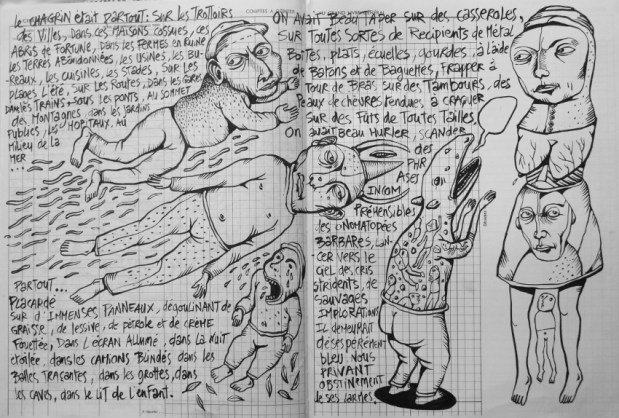 Le CHAGRIN était PARTOUT: SUR les TROTTOIRS
des Villes, Dans les MAISONS COSSUES, les
ABRIS de FORTUNE, DANS les FERMES EN RUINE
les TERRES ABANDONNÉES, les USINES, les BU-
-REAUX, les CUISINES, les STADES, SUR les
PLAGES L'ÉTÉ, SUR les ROUTES, DANS les GARES
DANS les TRAINS, SOUS les PONTS, AU SOMMET
des MONTAGNES dans les JARDINS
Publics, les HOPITAUX, AU
Milieu de la
MER
...
PARTOUT...
PLACARDÉ
SUR d'IMMENSES PANNEAUX, dégoulinant de
GRAISSE, de lessive, de pétrole et de CRÈME
FOUETTÉE, DANS L'ÉCRAN ALLUMÉ, dans la NUIT
étoilée, dans les CAMIONS Blindés dans les
BALLES TRAÇANTES, dans les GROTTES, dans
les CAVES, dans le LIT de l'enfant.
ON AVAIT BEAU TAPER SUR des CASSEROLES,
SUR TOUTES SORTES de RÉCIPIENTS de MÉTAL
BOITES, PLATS, ÉCUELLES, GOURDES, à l'aide
de BATONS et de BAGUETTES, FRAPPER à
TOUR de BRAS SUR des TAMBOURS, des
PEAUX de CHÈVRES tendues, à CRAQUER
SUR des FUTS de TOUTES TAILLES.
ON avait BEAU HURLER, SCANDER
des
PHR
ASES
INCOM
PRÉHENSIBLES
les ONOMATOPÉES
BARBARES, LAN-
CER VERS le
CIEL des CRIS
STRIDENTS, de
SAUVAGES
IMPLORATIONS
IL DEMEURAIT
DÉSESPÉRÉMENT
BLEU. NOUS
PRIVANT
OBSTINÉMENT
de ses LARMES.